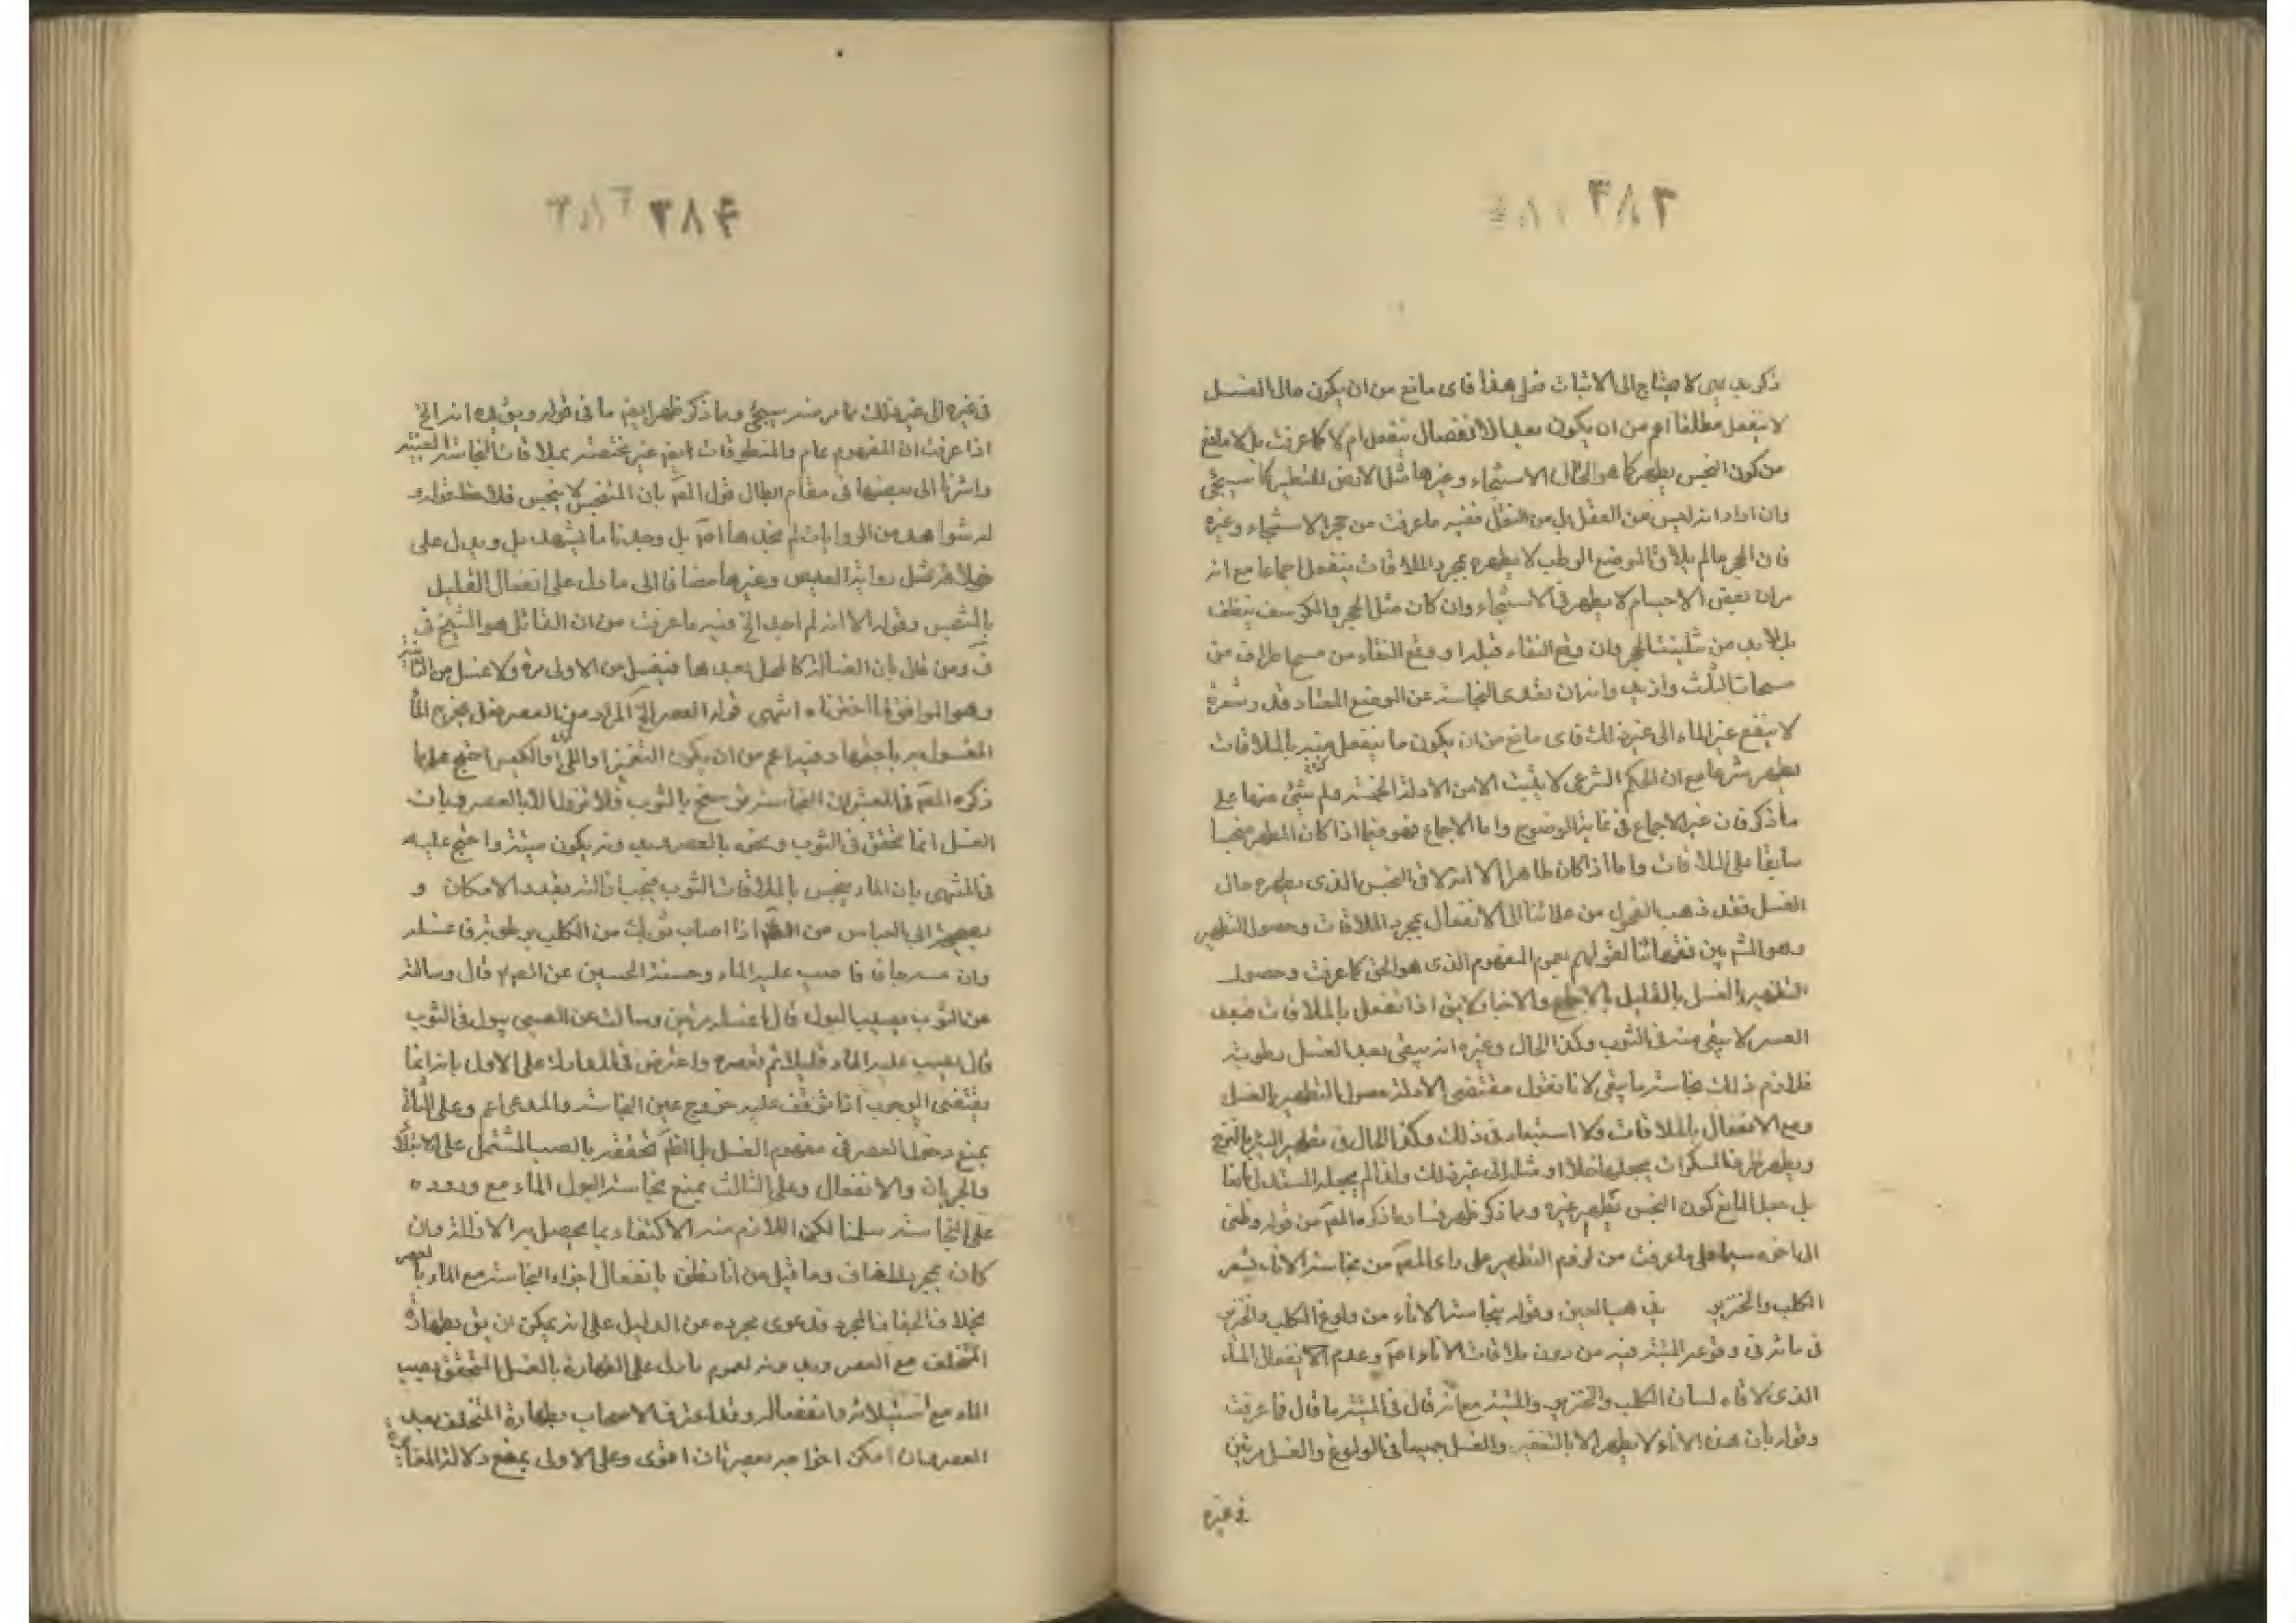 ٣٨٣
ذكر بديهى لا يحتاج الى الاثبات فعلى هذا فاى مانع من ان يكون حال الغسل
لا ينفعل مطلقا اعم من ان يكون بعد الانفصال ينفعل ام لا كما عرفت بل لا مانع
من كون النجس يطهر كما هو الحال الاستنجاء وغيرها مثل الارض للتطهير كما سيجئ
وان اراد انه ليس من العقل بل من النقل ففيه ما عرفت من حجر الاستنجاء وغيره
فان الحجر ما لم يلاق الموضع الرطب لا يطهره بمجرد الملاقات ينفعل اجماعا مع انه
مر ان بعض الاجسام لا يطهر فى الاستنجاء وان كان مثل الحجر والكرسف ينظف
بل لا بد من تثليث الحجر وان وقع النقاء قبله او وقع النقاء من مسحها طراف من
مسحات الثلث وازيد وانه ان تعدى النجاسة عن الموضع المعتاد قدر شعرة
لا ينفع غير الماء الى غير ذلك فاى مانع من ان يكون ما ينفعل منه بالملاقات
يطهر شرعا مع ان الحكم الشرعى لا يثبت الا من الادلة الخمسة ولم شئ منها على
ما ذكر فان غير الاجماع فى غاية الوضوح واما الاجماع فهو فيما اذا كان المطهر نجسا
سابقا على الملاقات واما اذا كان طاهرا الا انه لاقى النجس الذى يطهره حال
الغسل فقد ذهب الفحول من علمائنا الى الانفعال بمجرد الملاقات وحصول التطهير
وهو المشهـ بين فقهائنا لقولهم بعموم المفهوم الذى هو الحق كما عرفت وحصول
التطهير بالغسل بالقليل بالاجماع والاخبار لا يق اذا انفعل بالملاقات فبعد
العصر لا يبقى منه فى الثوب وكذا الحال وغيره انه يبقى بعد الغسل رطوبة
فلازم ذلك نجاسة ما يبقى لانا نقول مقتضى الادلة حصول التطهير بالغسل
ومع الانفعال بالملاقات ولا استبعاد فى ذلك وكذا الحال فى تطهير البئر بالنزح
ويطهر ظرف المسكرات بجعلها خلا او مثله الى غير ذلك ولذا لم يجعل المستدل مانعا
بل جعل المانع كون النجس تطهير غيره وبما ذكر ظهر فساد ما ذكره المصـ من قوله وظنى
الى اخره سيما على ما عرفت من لزوم التطهير على راى المصـ من نجاسة الاناء بشعر
الكلب والخنزير فى هب العين وقوله نجاسة الاناء من ولوغ الكلب والخنزير
فى مائه فى وقوع الميتة فيه من دون ملاقات الاناء اصـ وعدم الانفعال الماء
الذى لاقاه لسان الكلب والخنزير والميتة مع انه قال فى الميتة ما قال فما عرفت
وقوله بان هذه الاناء لا يطهر الا بالتعفير والغسل جميعا فى الولوغ والغسل مرتين
فى غيره
٣٨٤
فى غيره الى غير ذلك مما مر منه سيجئ وبما ذكر ظهر ايضـ ما فى قوله ويق فيه انه الخ
اذا عرفت ان المفهوم عام والمنطوقات ايضـ غير مختصة بملاقات النجاسة العينية
واشرنا الى بعضها فى مقام ابطال قول المصـ بان المتنجس لا ينجس فلاحظ قوله و
له شواهد من الروايات لم نجدها اصـ بل وجدنا ما يشهد بل ويدل على
خلافه مثل رواية العيص وغيرها مضافا الى ما دل على انفعال القليل
بالمتنجس وقوله الا انه لم اجد الخ فيه ما عرفت من ان القائل هو الشيخ فى
ف ومن قال بان الغسالة كالمحل بعدها فيغسل من الاولى مرة ولا غسل من الثانية
وهو الموافق لما اخترناه انتهى قوله العصر الخ المراد من العصر فعل يخرج الماء
المغسول به باجمعها وفيه اعم من ان يكون التغميز او اللى او الكبس احتج على ما
ذكره المصـ فى المعتبر بان النجاسة ترسخ بالثوب فلا تزول الا بالعصر وبان
الغسل انما تحقق فى الثوب ونحوه بالعصر وبدونه يكون صبا واحتج عليه
فى المنتهى بان الماء ينجس بالملاقات الثوب فيجب ازالته بقدر الامكان و
بصحيحة ابى العباس عن الصـ اذا اصاب ثوبك من الكلب رطوبة فاغسله
وان مسه جافا فاصبب عليه الماء وحسنة الحسين عن الصـ قال وسالته
عن الثوب يصيبه البول قال اغسله مرتين وسالته عن الصبى يبول فى الثوب
قال يصب عليه الماء قليلا ثم تعصره واعترض فى المدارك على الاول بانه انما
يقتضى الوجوب اذا توقف عليه خروج عين النجاسة والمدعى اعم وعلى الثانى
بمنع دخول العصر فى مفهوم الغسل بل الظـ تحققه بالصب المشتمل على الاستيلاء
والجريان والانفصال وعلى الثالث بمنع نجاسة البول الماء مع وروده
على النجاسة سلمنا لكن اللازم منه الاكتفاء بما يحصل به الازالة وان
كان بمجرد الجفاف وما قيل من انا نظن بانفصال اجزاء النجاسة مع الماء بالعصر
بخلاف الجفاف المجرد فدعوى مجرده عن الدليل على انه يمكن ان يق بطهارة
المتخلف مع العصر وبدونه لعموم ما دل على الطهارة بالغسل المتحقق بصب
الماء مع استيلائه وانفصاله وقد اعترف الاصحاب بطهارة المتخلف بعد
العصر وان امكن اخراجه بعصر ثان اقوى وعلى الاولى بمنع دلالة المقابلة